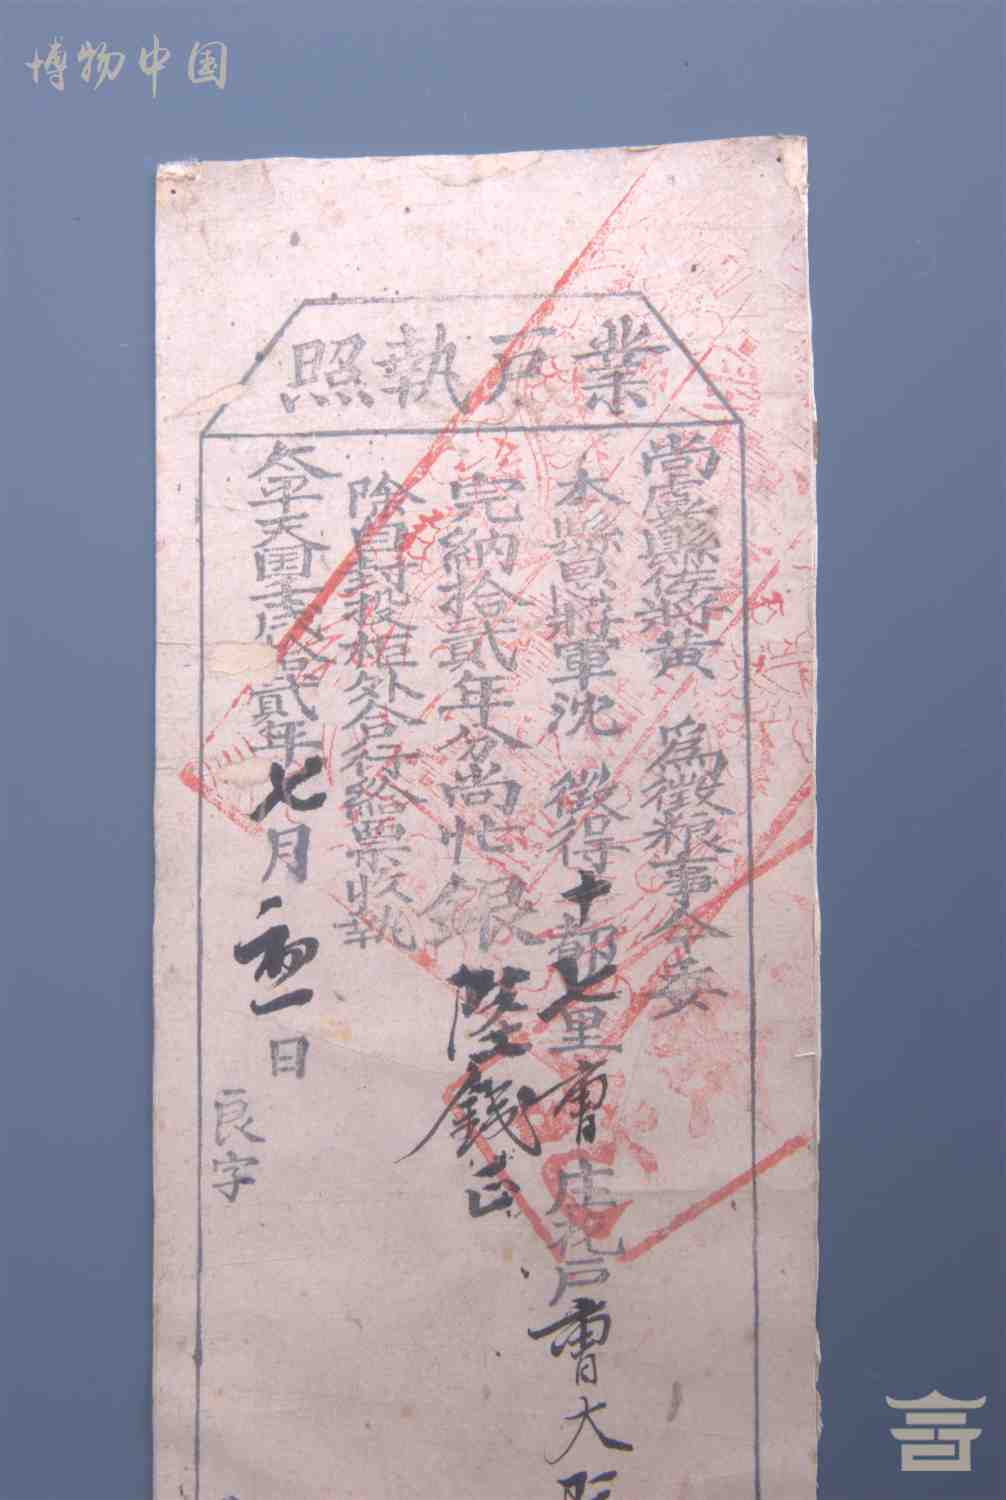 博物中国
業戶執照
尚虞縣佐將黃 為徵粮事今委
本縣恩將軍沈 徵得十都七里曹庄花戶曹大
完納拾貳年分尚忙銀陸錢正
除自封投柜外合行給票收執
太平天囯壬戌拾貳年七月初一日
良字